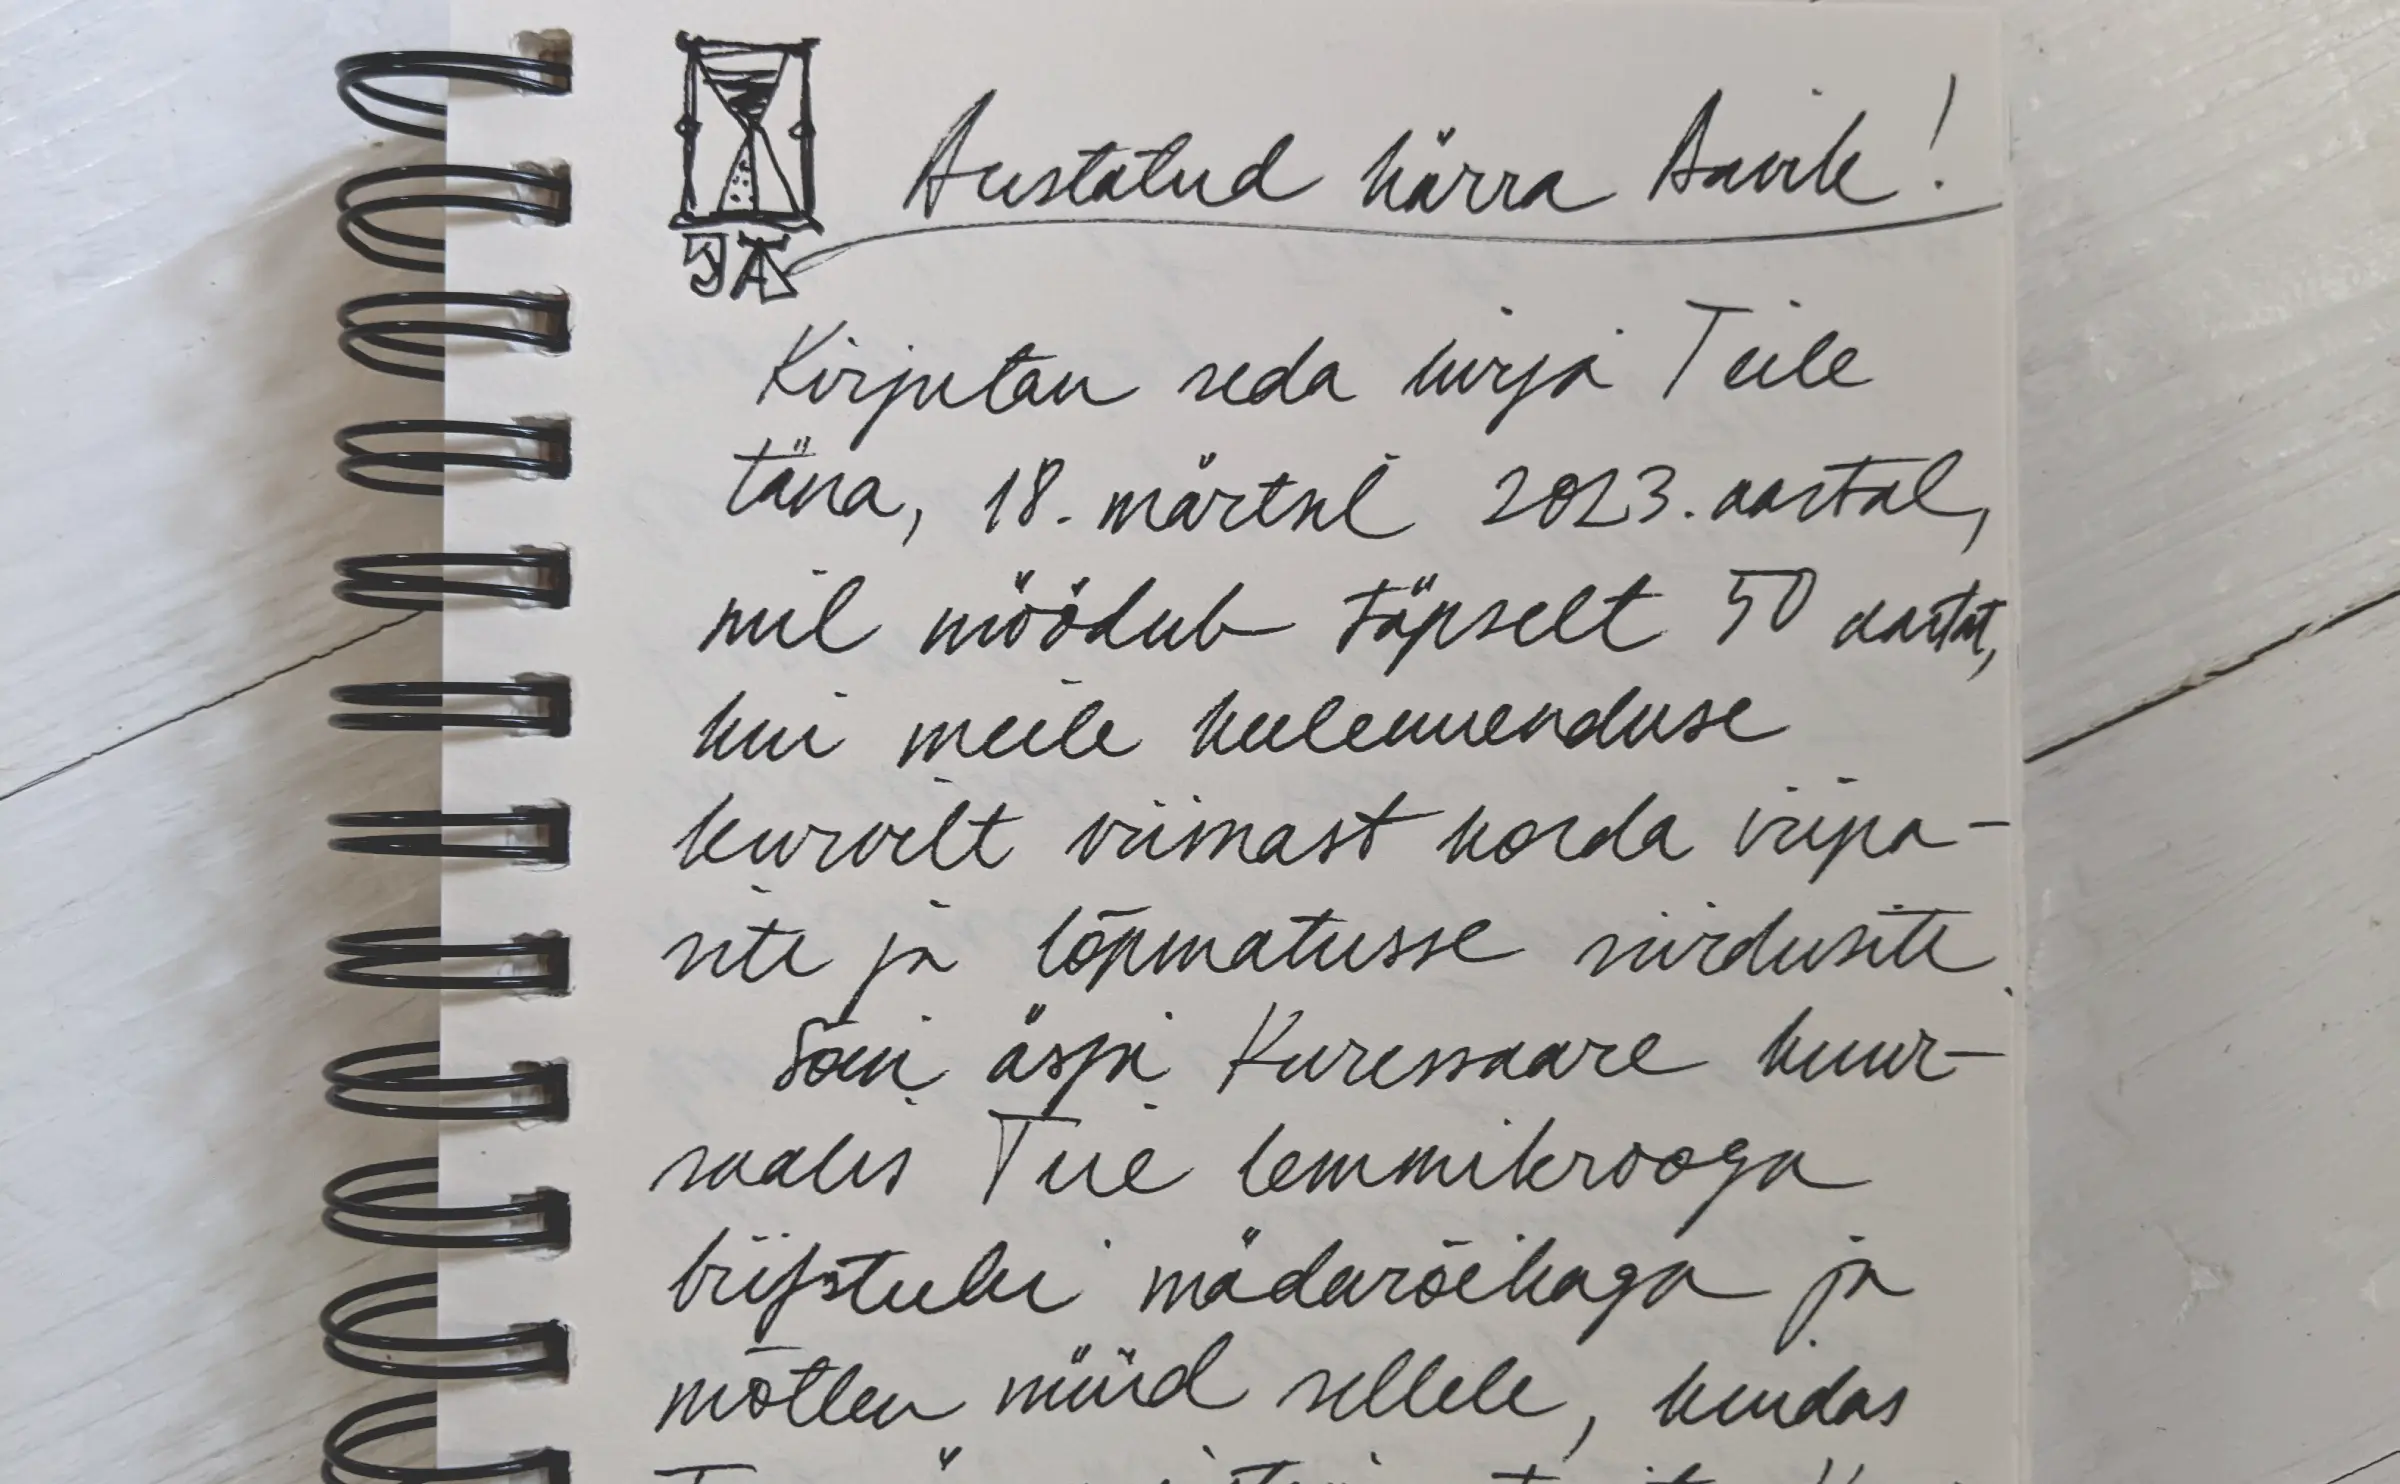 Austatud härra Aavik!
JA
Kirjutan seda kirja Teile
täna, 18. märtsil 2023. aastal,
mil möödub täpselt 50 aastat,
kui meile keeleuuenduse
kurvilt viimast korda viipa-
site ja lõpmatusse siirdusite.
Sõin äsja Kuressaare kuur-
saalis Teie lemmikrooga
biifstuki mädarõikaga ja
mõtlen nüüd sellele, kuidas